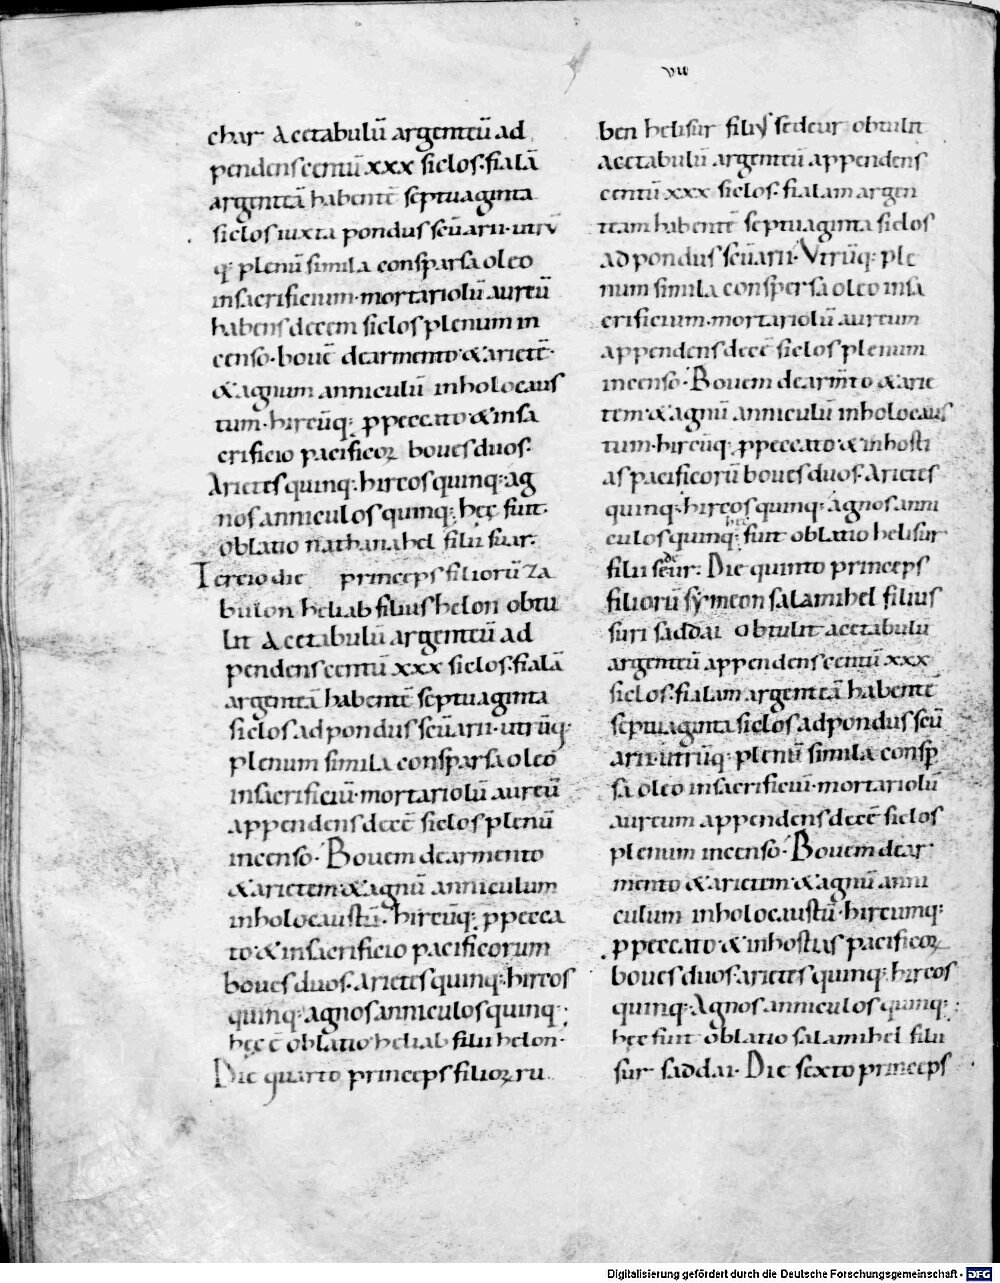 vii
char Acetabulū argenteū ad
pendens centū xxx siclos. fialā
argenteā habentē septuaginta
siclos iuxta pondus scuarii. utrū
q; plenū simila consparsa oleo
insacrificium. mortariolū aureū
habens decem siclos plenum in
censo. bouē dearmento & arietē.
& agnum anniculū inholocaus
tum. hircūq; ꝓpeccato & insa
crificio pacificoꝝ boues duos.
Arietes quinq; hircos quinq; ag
nos anniculos quinq; hęc fuit
oblatio nathanahel filii suar.
Tercio die princeps filiorū za
bulon heliab filius helon obtu
lit Acetabulū argenteū ad
pendens centū xxx siclos. fialā
argenteā habentē septuaginta
siclos ad pondus scūarii. utrūq;
plenum simila consparsa oleo
insacrificiū. mortariolū aureū
appendens decē siclos plenū
incenso. Bouem dearmento
& arietem & agnū anniculum
inholocaustū. hircūq; ꝓpecca
to & insacrificio pacificorum
boues duos. Arietes quinq; hircos
quinq; agnos anniculos quinq;
hęc ē oblatio heliab filii helon.
Die quarto princeps filioꝝ ru
ben helisur filiꝰ sedeur obtulit
acetabulū argenteū appendens
centū xxx siclos. fialam argen
team habentē septuaginta siclos
ad pondus scūarii. Vtrūq; ple
num simila conspersa oleo insa
crificium. mortariolū aureum
appendens decē siclos plenum
incenso. Bouem dearm̄to & arie
tem & agnū anniculū inholocaus
tum. hircūq; ꝓpeccato & inhosti
as pacificorū boues duos. Arietes
quinq; hircos quinq; agnos anni
culos quinq; hęc fuit oblatio helisur
filii sedeur. Die quinto princeps
filiorū symeon salamihel filius
suri saddai Obtulit acetabulū
argenteū appendens centū xxx
siclos. fialam argenteā habentē
septuaginta siclos ad pondus scū
arii. utrūq; plenū simila consꝑ
sa oleo insacrificiū. mortariolū
aureum appendens decē siclos
plenum incenso. Bouem dear
mento & arietem & agnū anni
culum inholocaustū. hircumq;
ꝓpeccato & inhostias pacificoꝝ
boues duos. arietes quinq; hircos
quinq; Agnos anniculos quinq;
hęc fuit oblatio salamihel filii
sur saddai. Die sexto princeps
Digitalisierung gefördert durch die Deutsche Forschungsgemeinschaft - DFG